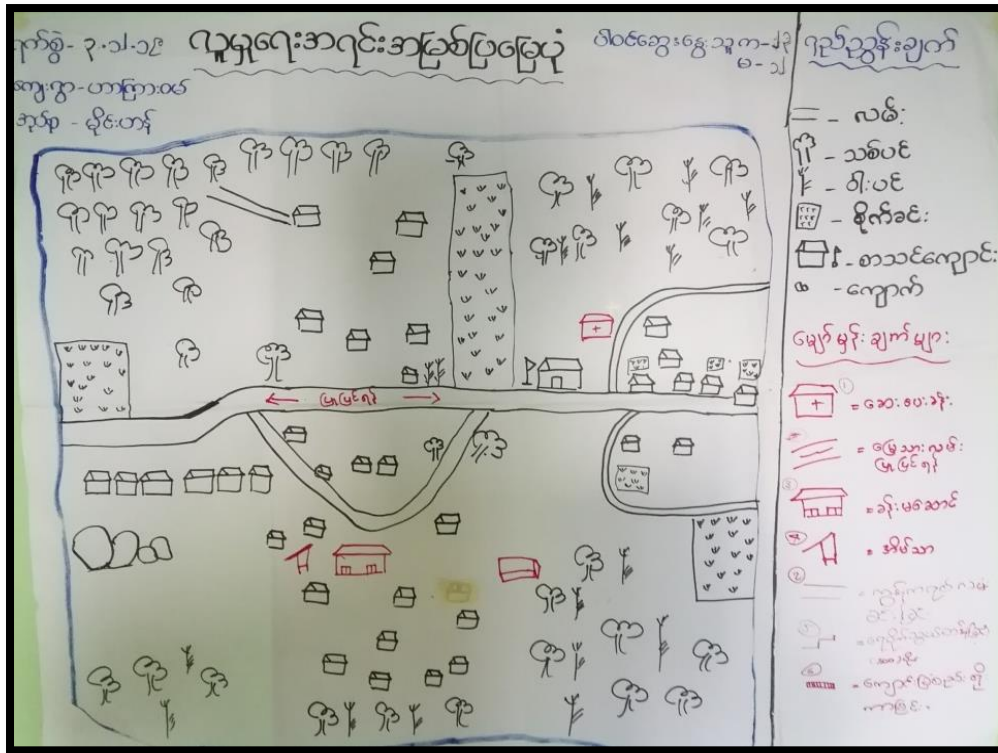 ရက်စွဲ- ၃.၁၂.၁၉
လူမှုရေးအရင်းအမြစ်ပြမြေပုံ
ပါဝင်ဆွေးနွေးသူ က-၂၃
မ-၁၂
ကျေးရွာ-ဟာကြားဝမ်
အုပ်စု - မိုင်းဟန်
ရည်ညွှန်းချက်
= - လမ်း
- သစ်ပင်
- ဝါးပင်
- စိုက်ခင်း
- စာသင်ကျောင်း
- ကျောက်
မျှော်မှန်းချက်များ
① = ဆေးပေးခန်း
= မြေသားလမ်း
ပြုပြင်ရန်
③ = ခန်းမဆောင်
= အိမ်သာ
← ပြုပြင်ရန် →